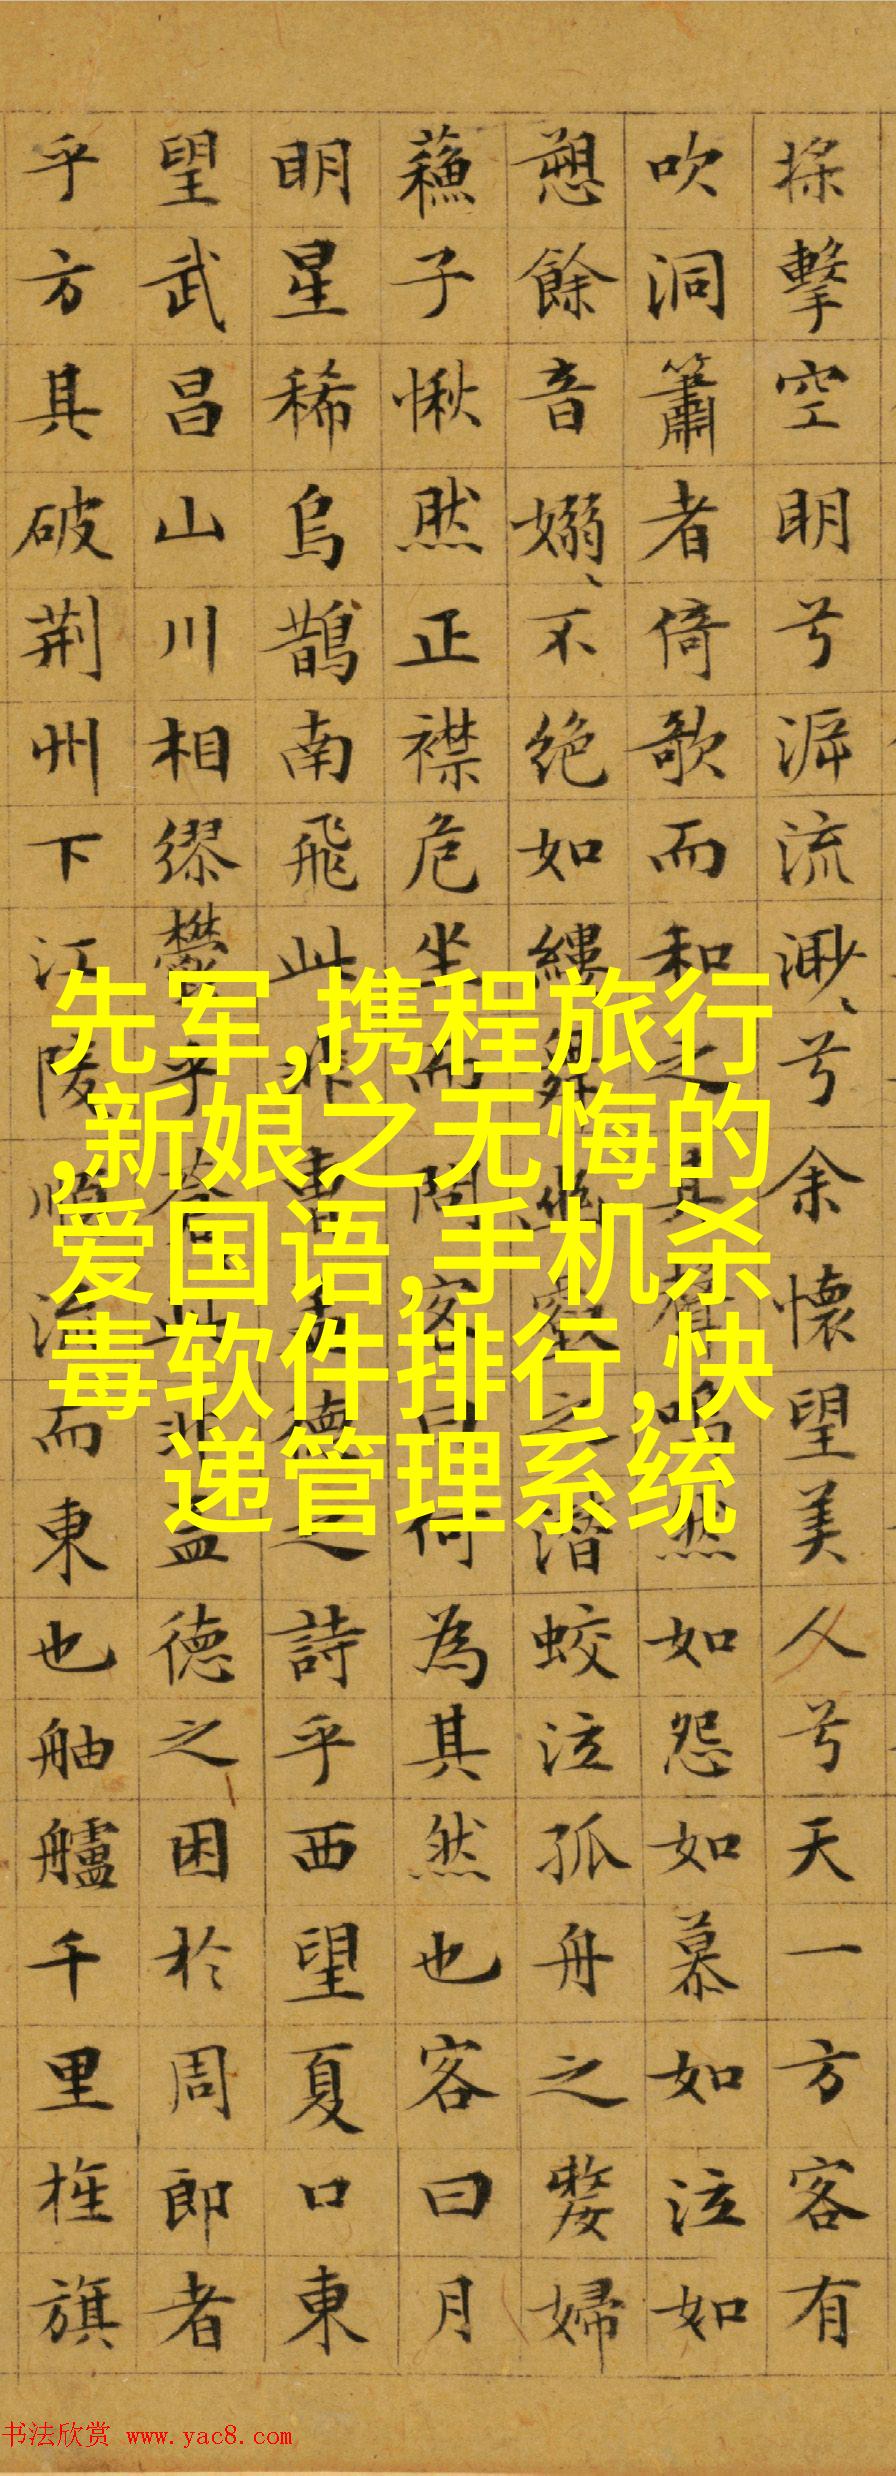 擊空明兮泝流渺、兮余懷望美人兮天一方客有
吹洞簫者倚歌而和之其聲嗚然如怨如慕如泣如
愬餘音嫋、不絶如縷舞幽壑之潛蛟泣孤舟之嫠婦
蘓子愀然正襟危坐而問客曰何為其然也客曰月
明星稀烏鵲南飛此非曹孟德之詩乎西望夏口東
望武昌山川相繆欝乎蒼此非孟德之困於周郎者
乎方其破荆州下江陵順流而東也舳艫千里旌旗
先军,携程旅行
,新娘之无悔的
爱国语,手机杀
毒软件排行,快
递管理系统
书法欣赏 www.yac8.com